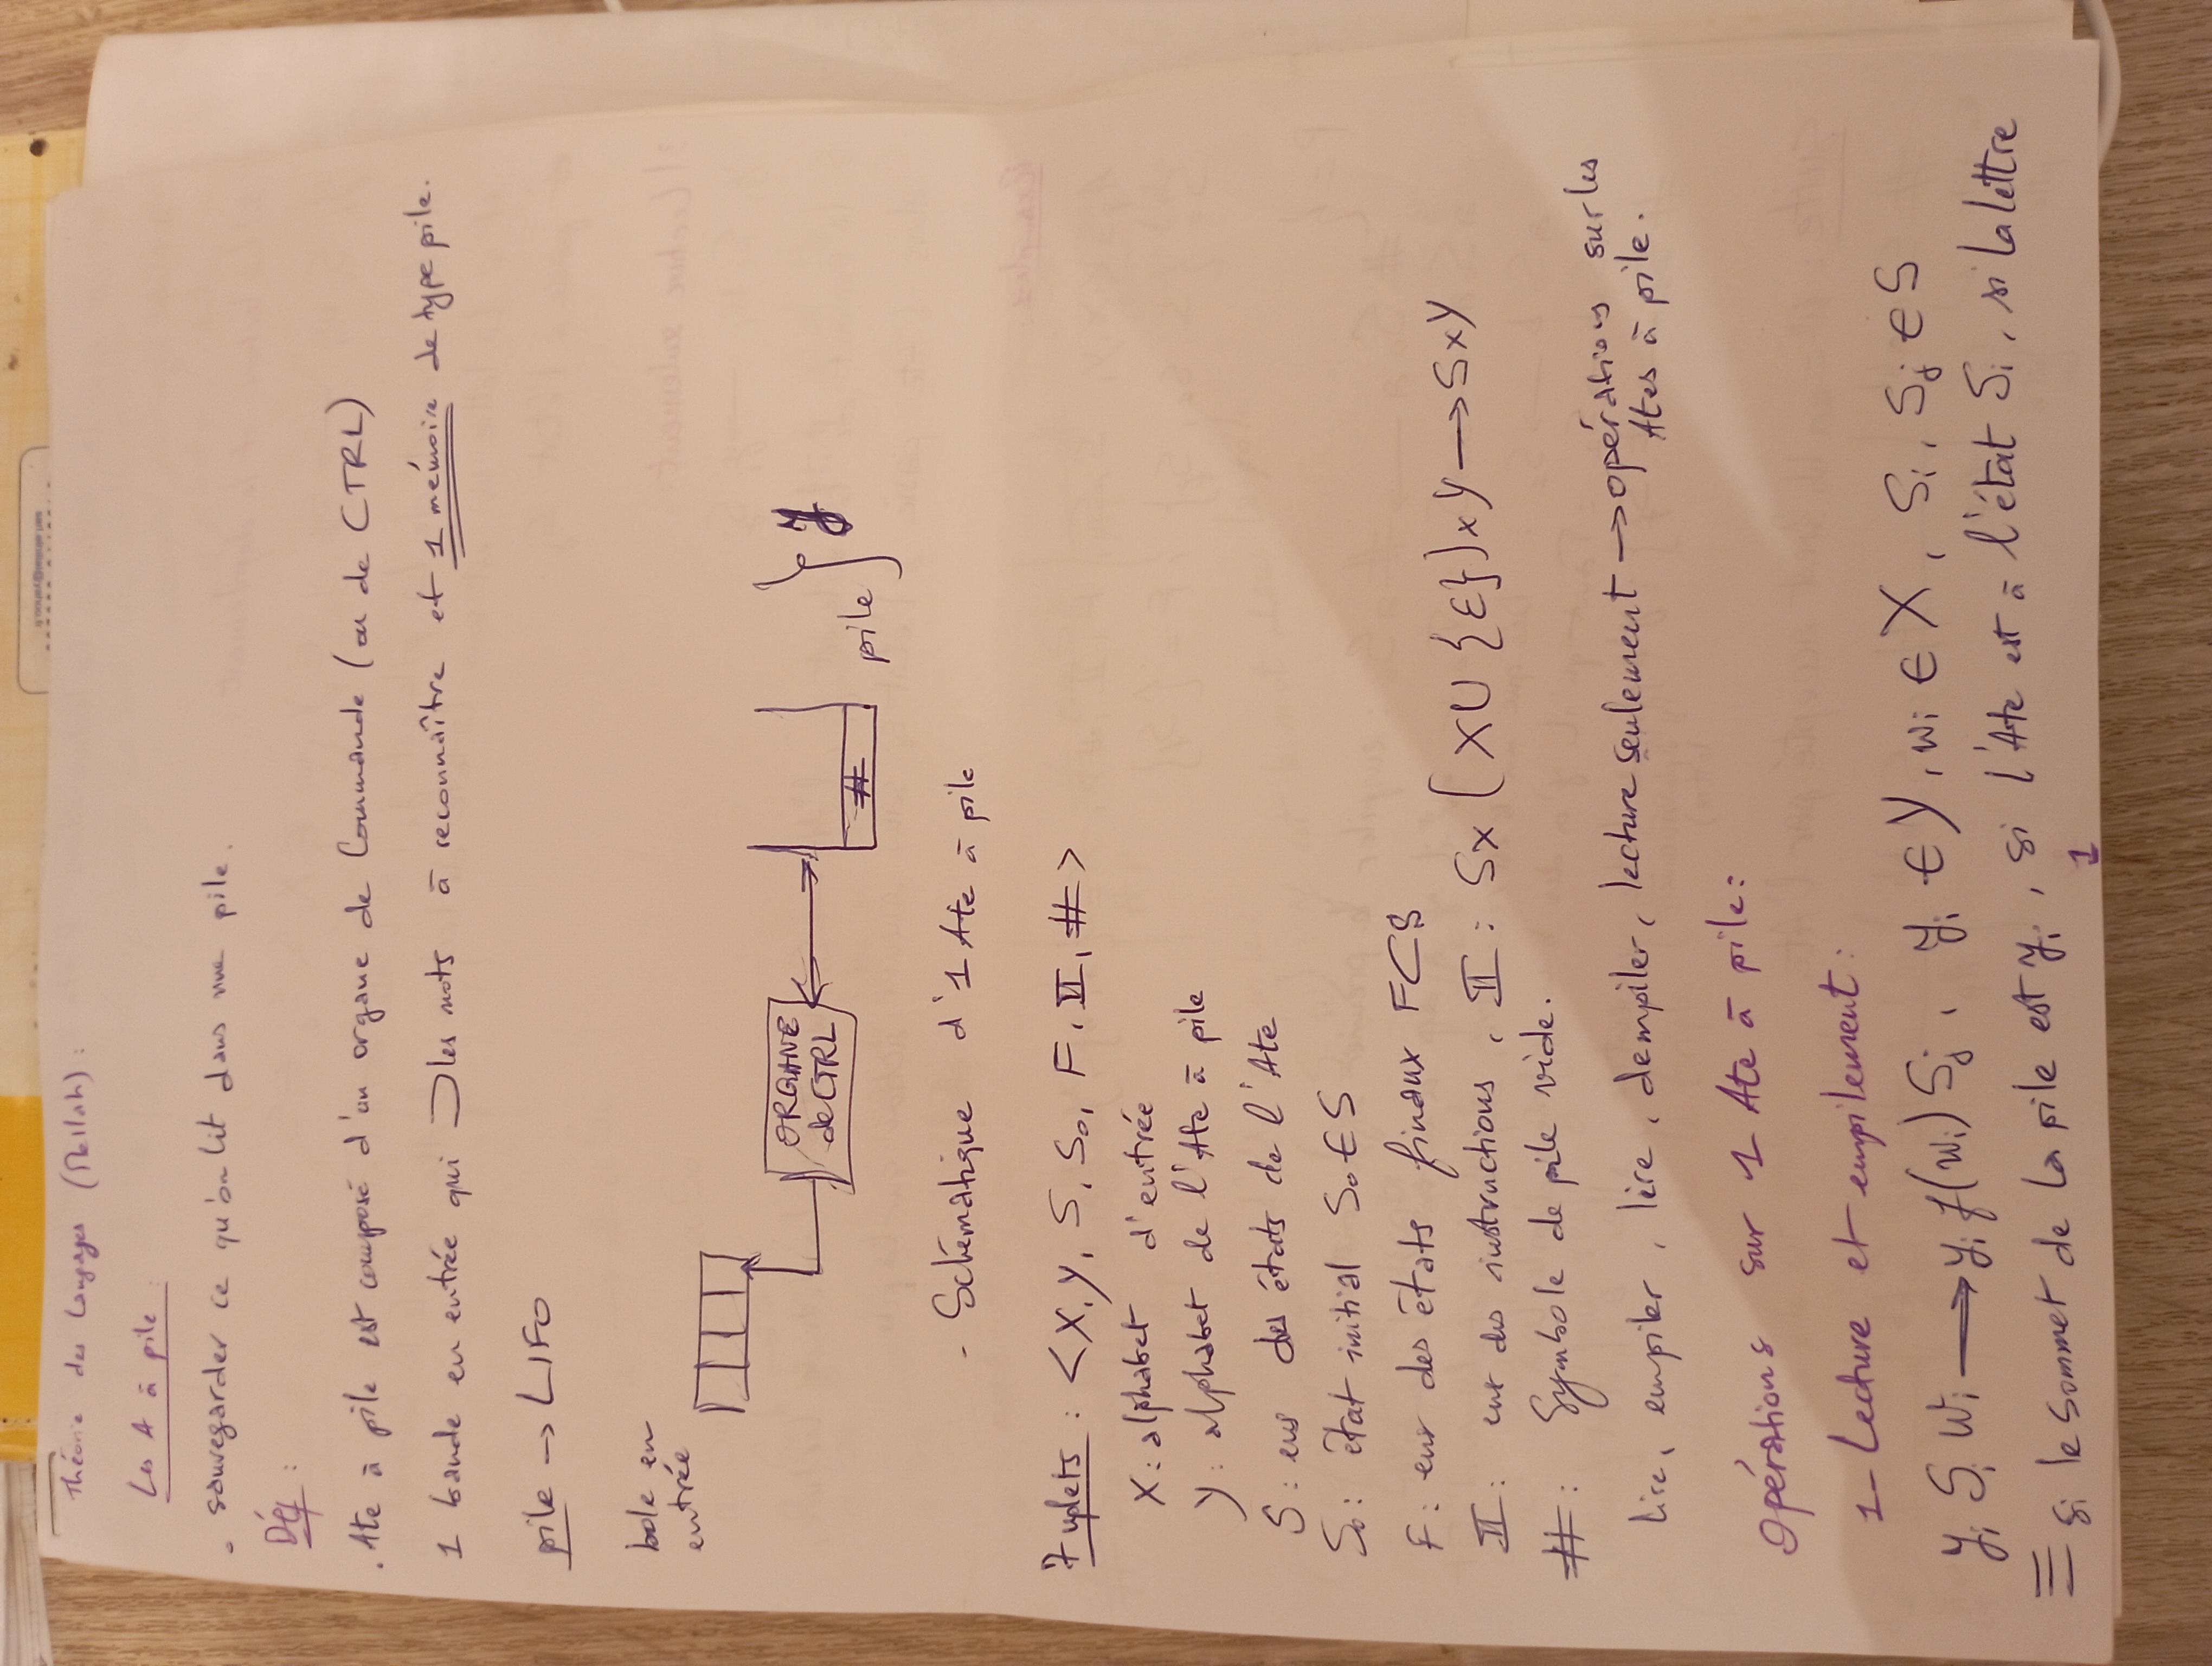 Théorie des Langages (Mellah) :
Les A à pile :
. sauvegarder ce qu'on lit dans une pile.
Déf :
. Ate à pile est composé d'un organe de Commande (ou de CTRL)
1 bande en entrée qui ⊃ les mots à reconnaître et 1 mémoire de type pile.
pile → LIFO
en
entrée
ORGANE
de CTRL
#
pile } y
- Schématique d'1 Ate à pile
7 uplets : <X, Y, S, S₀, F, II, #>
X : alphabet d'entrée
Y : alphabet de l'Ate à pile
S : ens des états de l'Ate
S₀ : état initial S₀ ∈ S
F : ens des états finaux F⊂S
II : ens des instructions, II : S× (X∪{ε})×Y → S×Y
# : Symbole de pile vide.
lire, empiler, lire, dempiler, lecture seulement → opérations sur les
Ates à pile.
Opérations sur 1 Ate à pile :
1- Lecture et empilement :
yᵢ Sᵢ wᵢ → yᵢ f(wᵢ) Sⱼ, yᵢ ∈ Y, wᵢ ∈ X, Sᵢ, Sⱼ ∈ S
≡ si le sommet de la pile est yᵢ, si l'Ate est à l'état Sᵢ, si la lettre
1